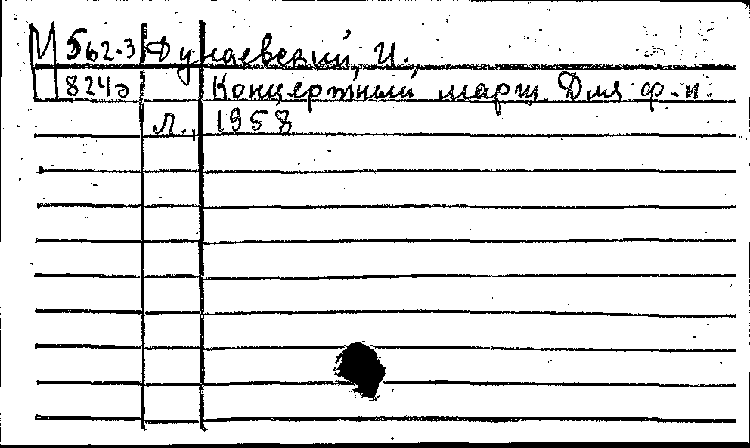 М 562-3 Дунаевский, И.
824д Концертный марш. Для ф.-п.
Л., 1958